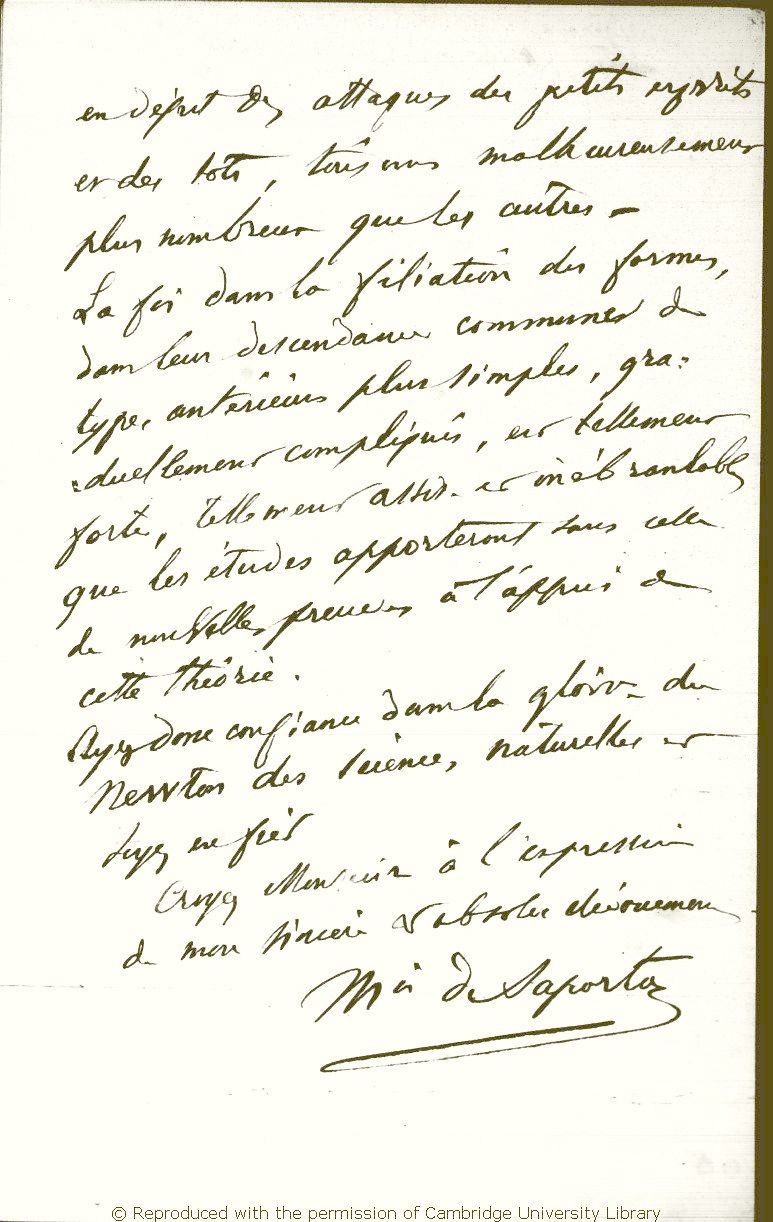 en dépit des attaques des petits esprits
et des sots, toujours malheureusement
plus nombreux que les autres –
La foi dans la filiation des formes,
dans leur descendance commune de
types antérieurs plus simples, gra=
=duellement compliqués, est tellement
forte, tellement assise et inébranlable
que les études apporteront sans cesse
de nouvelles preuves à l'appui de
cette théorie.
Ayez donc confiance dans la gloire du
Newton des sciences naturelles et
soyez en fier
Croyez Monsieur à l'expression
de mon sincère & absolu dévouement
Mis de Saporta
© Reproduced with the permission of Cambridge University Library